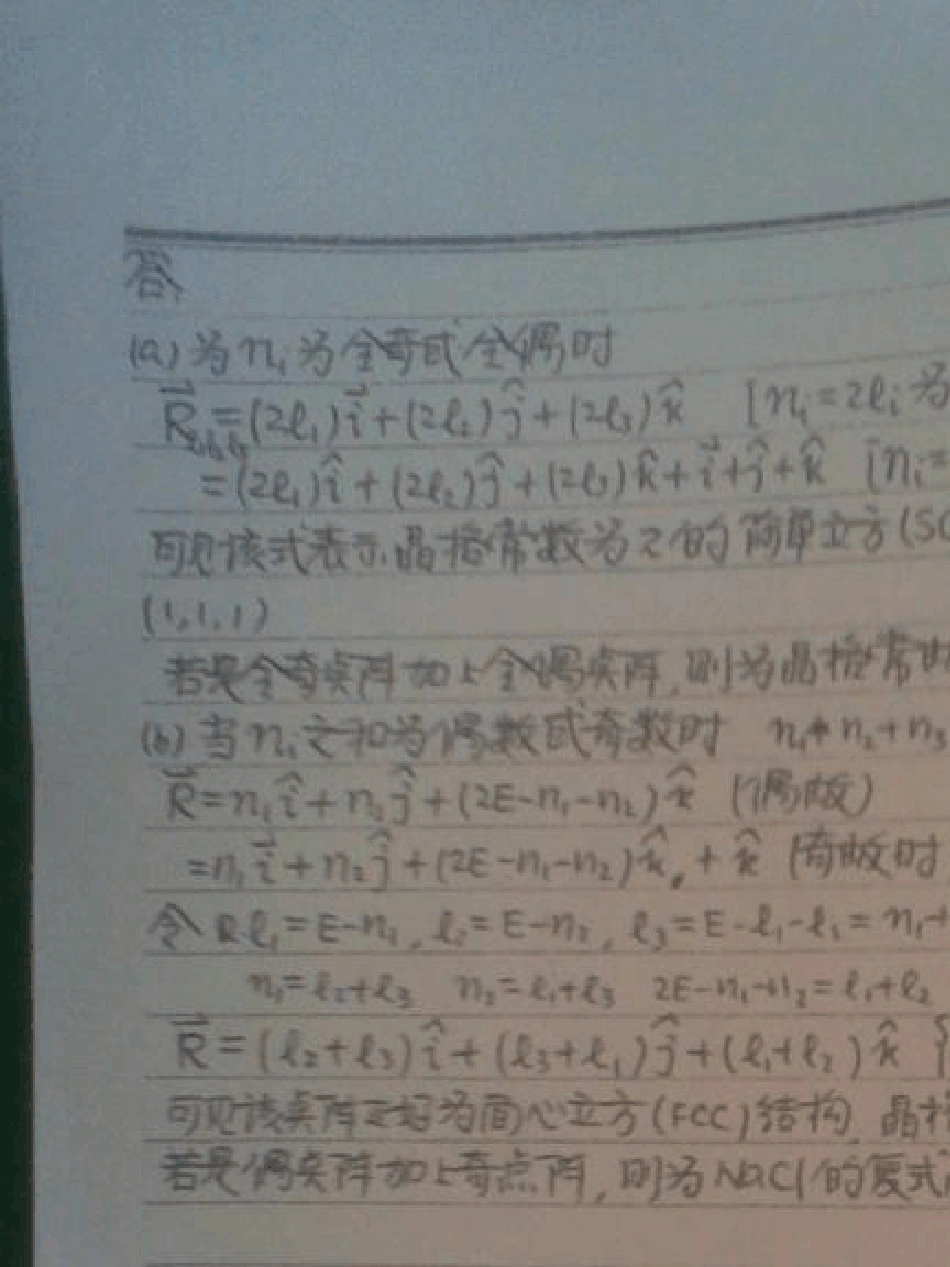 答
(a) 为 n₁ 为全奇或全偶时
R⃗ = (2ℓ₁)i⃗ + (2ℓ₂)ĵ + (2ℓ₃)k̂ [nᵢ = 2ℓᵢ 为
= (2ℓ₁)î + (2ℓ₂)ĵ + (2ℓ₃)k̂ + i⃗ + ĵ + k̂ [nᵢ =
可见该式表示晶格常数为2的简单立方(SC
(1,1,1)
若是全奇点阵加上全偶点阵,则为晶格常
(b) 当 nᵢ 之和为偶数或奇数时 n₁+n₂+n₃
R⃗ = n₁î + n₂ĵ + (2E-n₁-n₂)k̂ (偶故)
= n₁i⃗ + n₂ĵ + (2E-n₁-n₂)k̂ + k̂ (奇故时
令 ℓ₁ = E-n₁, ℓ₂ = E-n₂, ℓ₃ = E-ℓ₁-ℓ₁ = n₁
n₁ = ℓ₂+ℓ₃ n₂ = ℓ₁+ℓ₃ 2E-n₁-n₂ = ℓ₁+ℓ₂
R⃗ = (ℓ₂+ℓ₃)î + (ℓ₃+ℓ₁)ĵ + (ℓ₁+ℓ₂)k̂
可见该点阵正好为面心立方(FCC)结构,晶格
若是偶点阵加上奇点阵,则为NaCl的复式